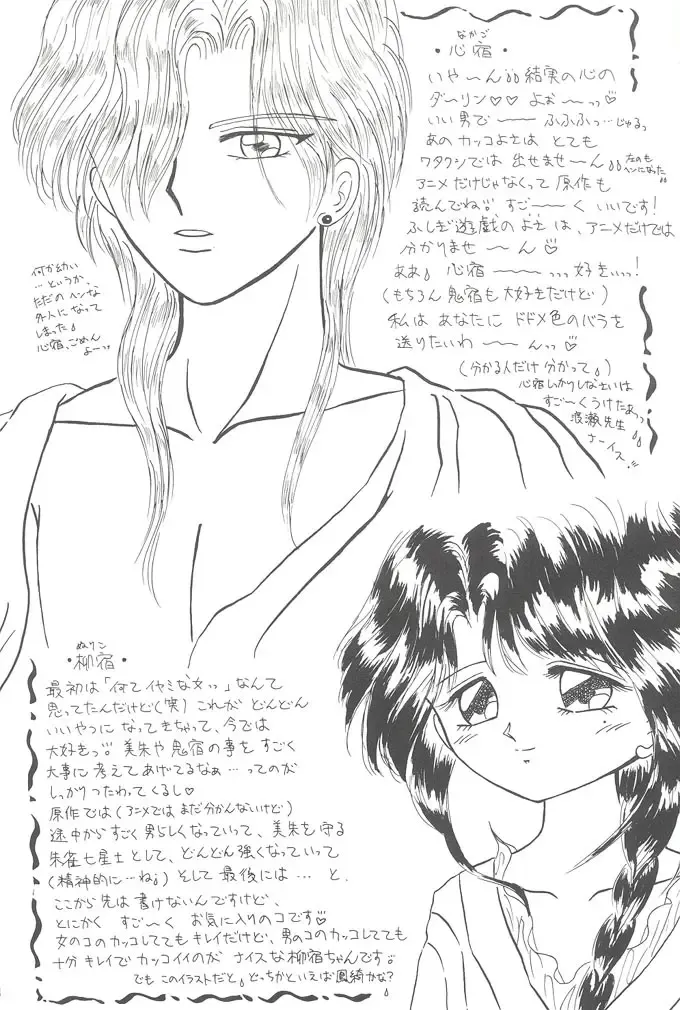 なかご
・心宿・
いや〜ん 結実の心の
ダーリン♡♡ よぉ〜〜っ♡
いい男で〜〜〜 ふふふっ…じゅるっ
あのカッコよさは とても
ワタクシでは 出せませ〜ん
左のも
ヘンになった
アニメだけじゃなくって 原作も
読んでね すご〜〜く いいです！
ふしぎ遊戯のよさは、アニメだけでは
分かりませ 〜 ん♡
ああ 心宿 〜〜〜っっ 好きぃっ！
(もちろん鬼宿も大好きだけど)
私は あなたに ドドメ色のバラを
送りたいわ 〜〜んっっ♡
(分かる人だけ 分かって)
心宿しかりしなさいは
すご〜くうけたぁっ
渡瀬先生
ナーイス!!
何か幼い
…というか、
ただのヘンな
外人になって
しまった
心宿、ごめん
よーっっ
ぬりこ
・柳宿・
最初は「何てイヤミな女っっ」なんて
思ってたんだけど(笑) これが どんどん
いいやつに なってきちゃって、今では
大好きっ 美朱や 鬼宿の事を すごく
大事に 考えてあげてるなぁ …ってのが
しっかりつたわってくるし♡
原作では(アニメでは まだ分かんないけど)
途中からすごく男らしくなっていって、美朱を守る
朱雀七星士として、どんどん強くなっていって
(精神的に…ね) そして 最後には … と、
ここから先は書けないんですけど、
とにかく すご〜く お気に入りのコです♡
女のコのカッコしててもキレイだけど、男のコのカッコしてても
十分 キレイで カッコイイのが ナイスな柳宿ちゃんです。
でも このイラストだと、どっちかといえば鳳綺かな？